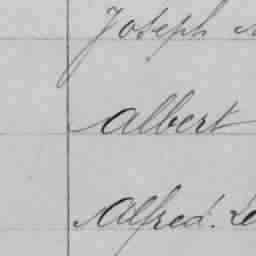 Joseph
Albert
Alfred. Le